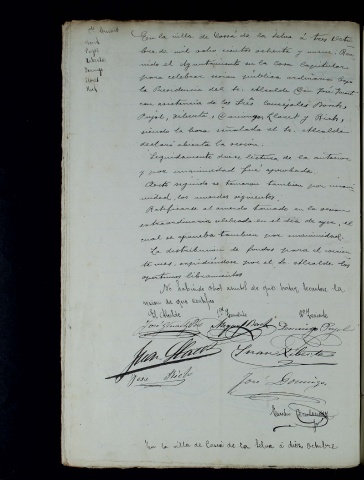 En la villa de Cassá de la Selva á tres Octu
bre de mil ocho cientos ochenta y nueve. Reu
nido el Ayuntamiento en la casa Capitular
para celebrar sesion pública ordinaria bajo
la Presidencia del Sr. Alcalde Don José
con asistencia de los Sres Concejales Bosch,
Pujol, Xiberta, Domingo, Llauet y Rich,
siendo la hora señalada el Sr. Alcalde
declaró abierta la sesion.
Seguidamente dióse lectura de la anterior
y por unanimidad fué aprobada.
Acto seguido se tomaron tambien por unani
midad, los acuerdos siguientes
Ratificarse al acuerdo tomado en la sesion
extraordinaria celebrada en el dia de ayer, el
cual se aprueba tambien por unanimidad.
La distribucion de fondos para el corrien
te mes, expidiendose por el Sr. Alcalde los
oportunos libramientos
No habiendo otros asuntos de que tratar, levantose la
sesion de que certifico
El Alcalde
Miguel Bosch
Domingo Pujol
Juan
Juan Xiberta
José Rich
José Domingo
En la villa de Cassá de la Selva á diez Octubre